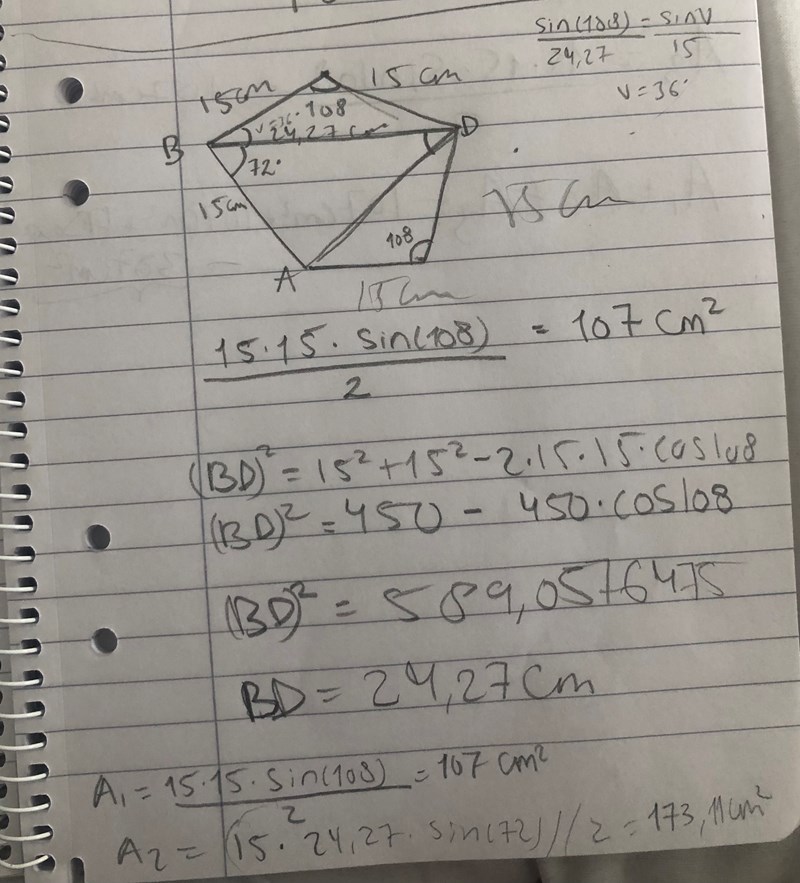 sin(108) = sinV
24,27 15
V = 36°
15cm 15 cm
108
V=36°
24,27 cm
B D
72°
15cm 15 cm
108
A
15 cm
15·15· sin(108) = 107 cm²
2
(BD)² = 15² + 15² - 2·15·15·cos108
(BD)² = 450 - 450·cos108
(BD)² = 589,0576475
BD = 24,27 cm
A₁ = 15·15· sin(108) = 107 cm²
2
A₂ = (15· 24,27· sin(72)) / 2 = 173,11cm²